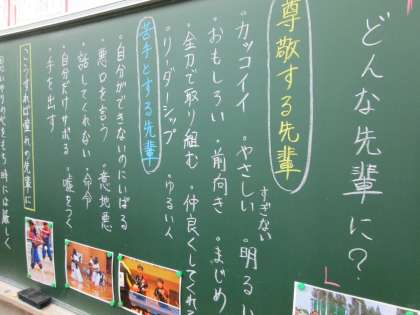 どんな先輩に？
尊敬する先輩
・カッコイイ ・やさしい ・明るい
すぎない
・おもしろい ・前向き ・まじめ
・全力で取り組む ・仲良くしてくれる
・リーダーシップ ・ゆるい人
苦手とする先輩
・自分ができないのにいばる
・悪口を言う ・意地悪
・話してくれない ・命令
・自分だけサボる ・嘘をつく
・手を出す
こうすれば憧れの先輩に
思いやりの心をもち時には厳しく